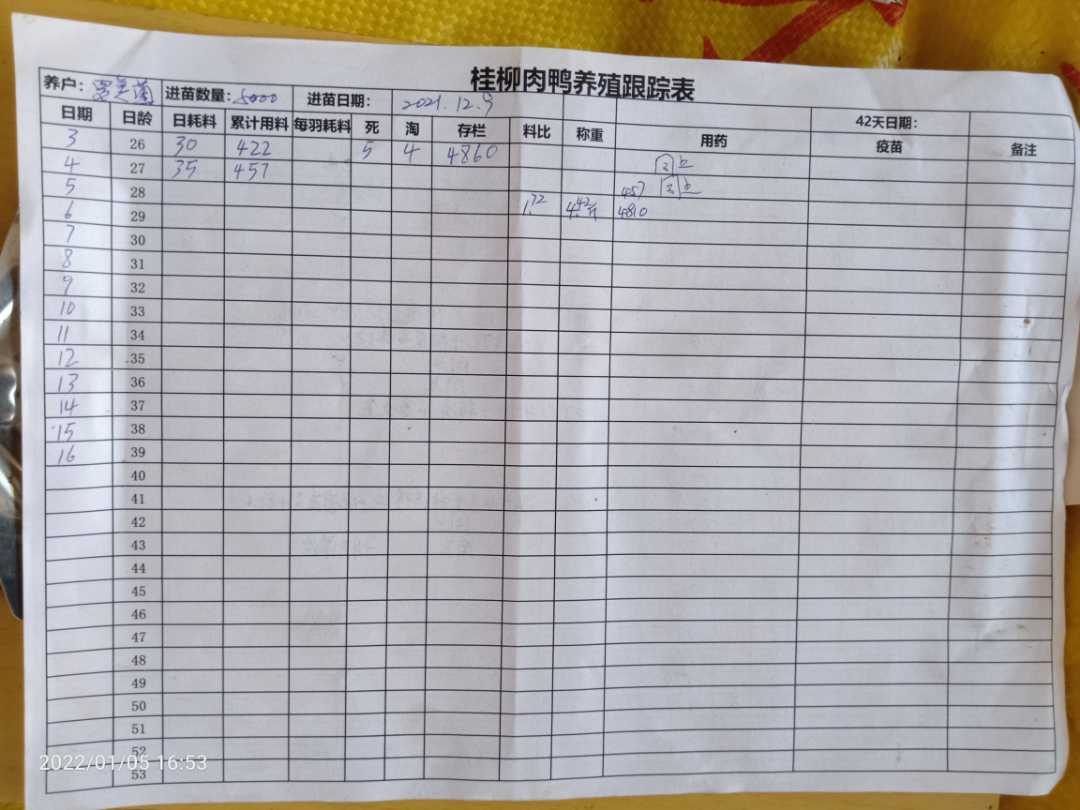 桂柳肉鸭养殖跟踪表
养户: 进苗数量: 5000 进苗日期: 2021.12.9 42天日期:
日期 日龄 日耗料 累计用料 每羽耗料 死 淘 存栏 料比 称重 用药 疫苗 备注
3 26 30 422 5 4 4860
4 27 35 457
5 28 457
6 29 1.72 4.42斤 4810
7 30
8 31
9 32
10 33
11 34
12 35
13 36
14 37
15 38
16 39
40
41
42
43
44
45
46
47
48
49
50
51
52
53
2022/01/05 16:53